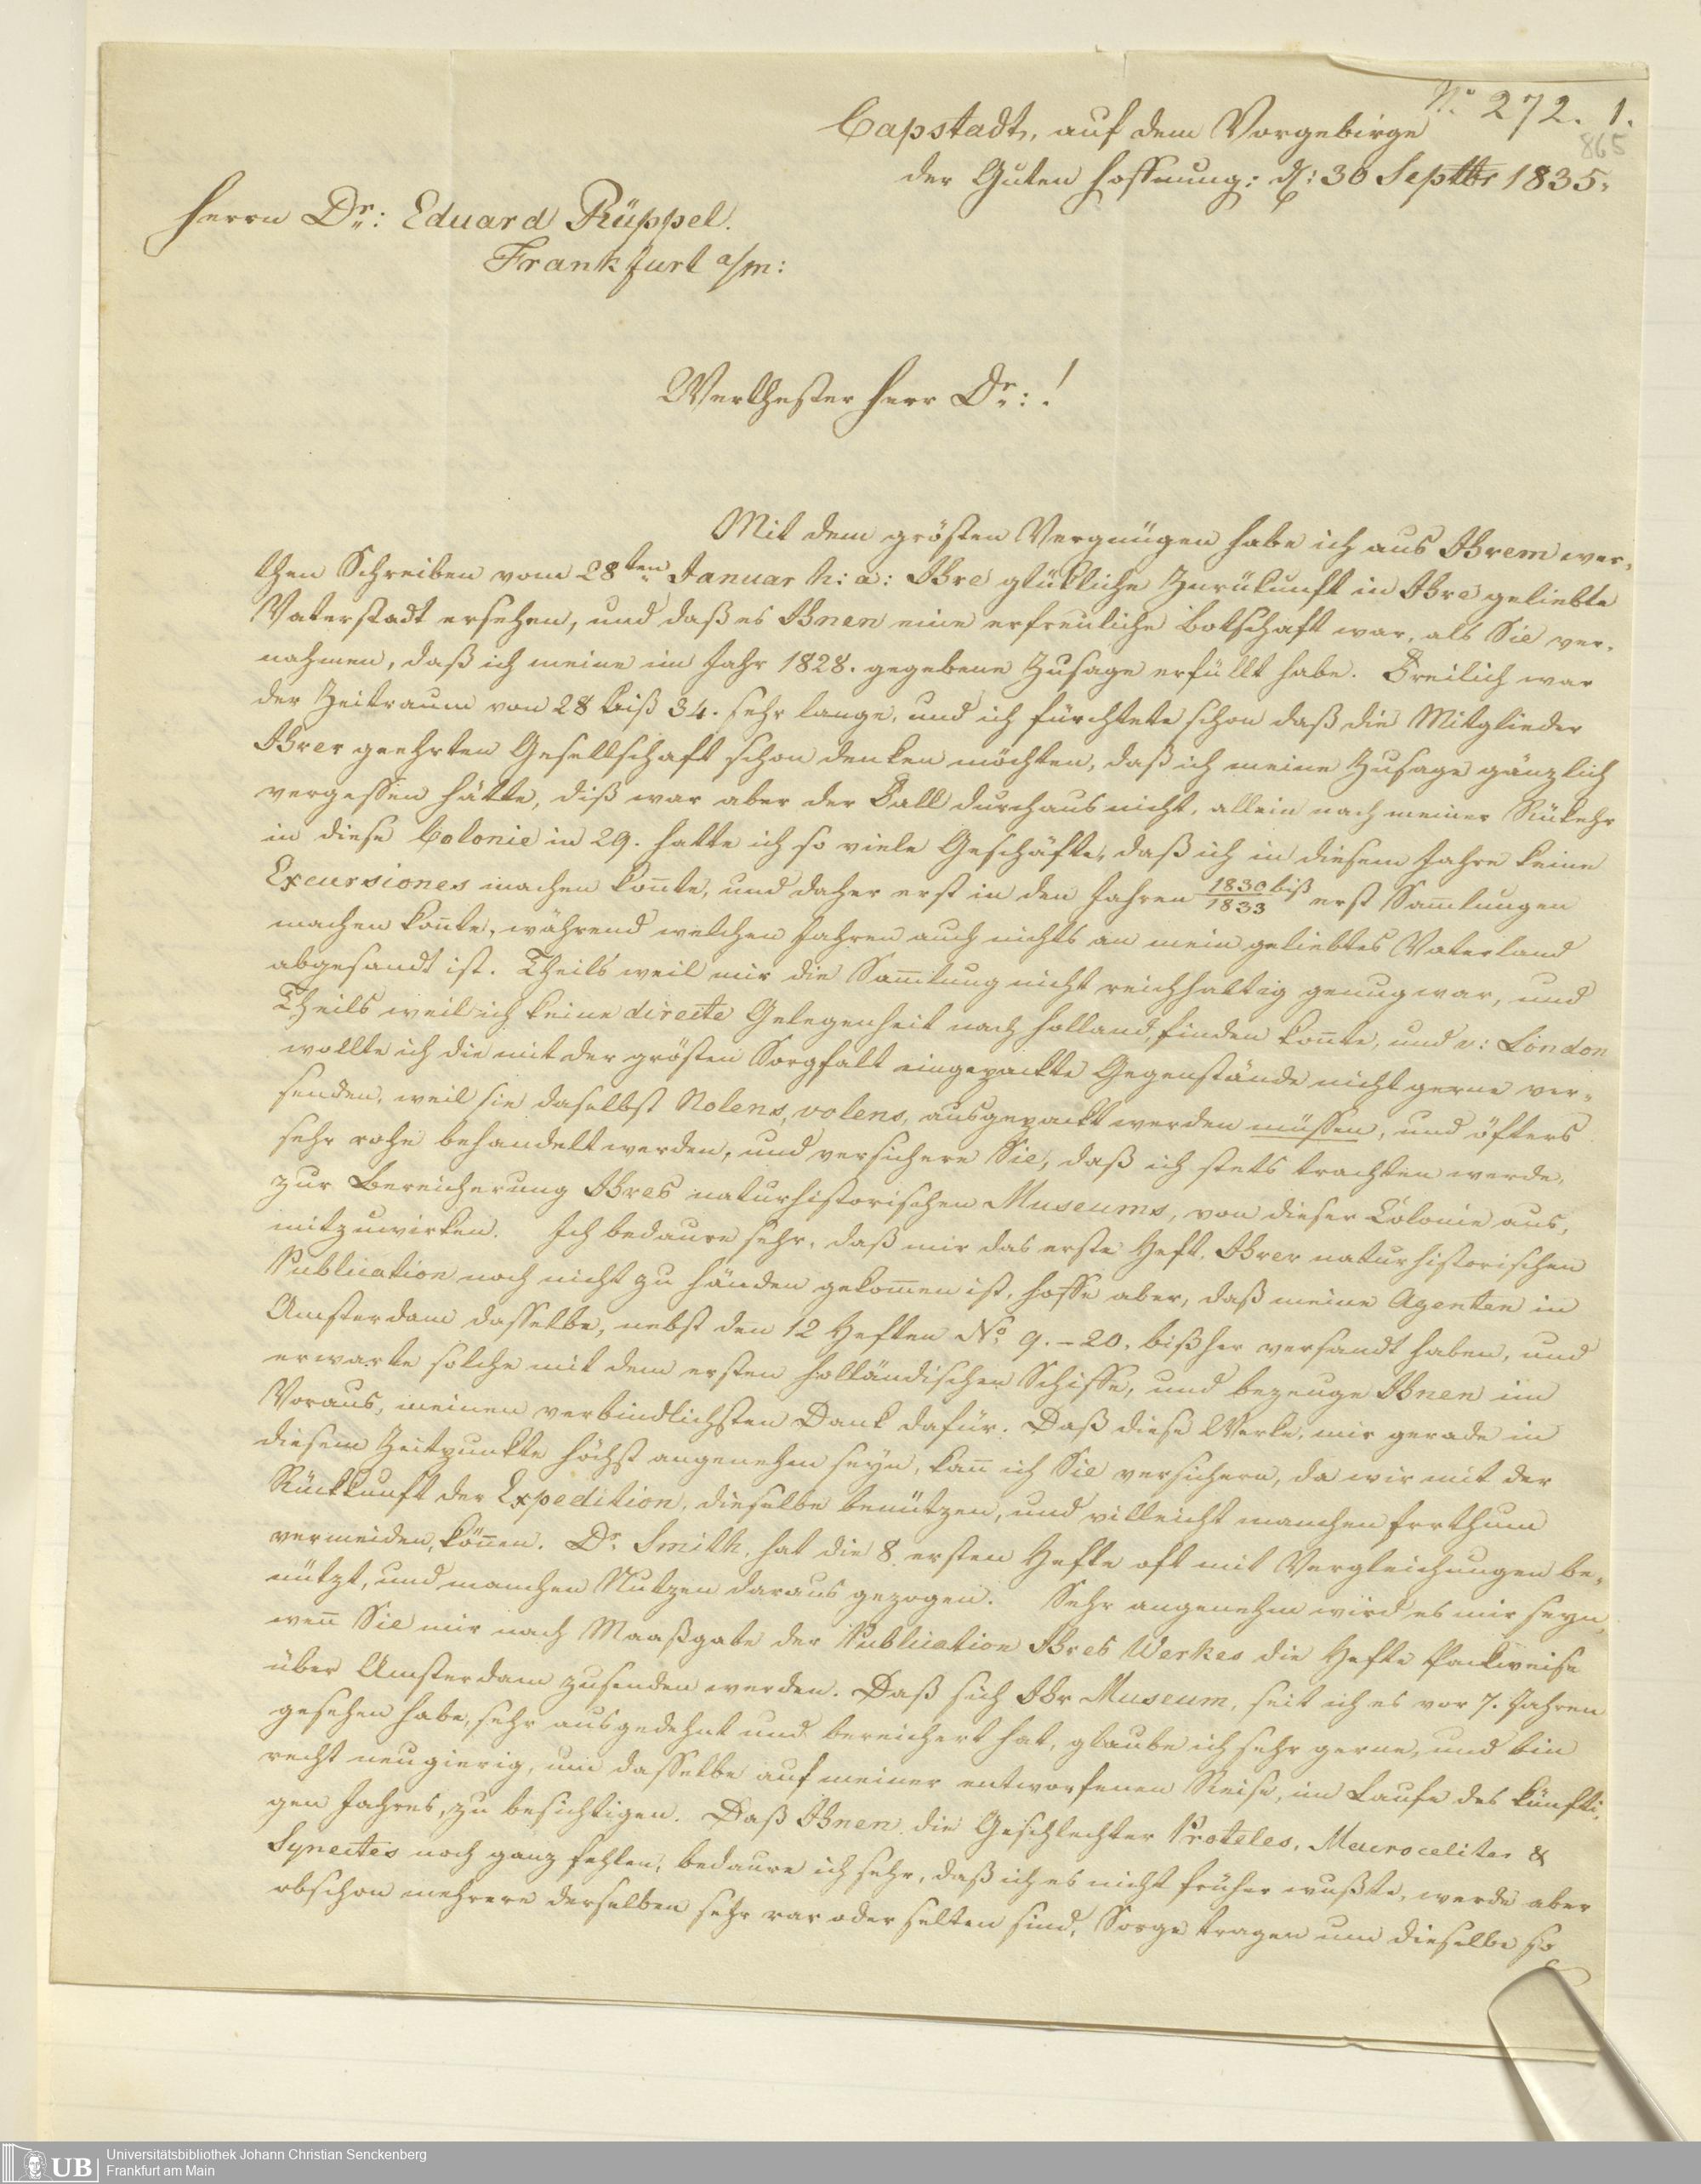 No 272. 1.
865
Capstadt, auf dem Vorgebirge
der Guten Hoffnung: d: 30 Septbr 1835.
Herrn Dr: Eduard Rüppel.
Frankfurt a/m:
Werthester Herr Dr: !
Mit dem grösten Vergnügen habe ich aus Ihrem wer-
then Schreiben vom 28ten Januar h: a: Ihre glükliche Zurükunft in Ihre geliebte
Vaterstadt ersehen, und daß es Ihnen eine erfreuliche Botschaft war, als Sie ver-
nahmen, daß ich meine im Jahr 1828. gegebene Zusage erfüllt habe. Freilich war
der Zeitraum von 28 biß 34. sehr lange, und ich fürchtete schon daß die Mitglieder
Ihrer geehrten Gesellschaft schon denken möchten, daß ich meine Zusage gänzlich
vergessen hätte, diß war aber der Fall durchaus nicht, allein nach meiner Rükehr
in diese Colonie in 29. hatte ich so viele Geschäfte, daß ich in diesem Jahre keine
Excursiones machen kon̄te, und daher erst in den Jahren 1830 biß 1833 erst Sam̄lungen
machen kon̄te, während welchen Jahren auch nichts an mein geliebtes Vaterland
abgesandt ist. Theils weil mir die Sam̄lung nicht reichhaltig genug war, und
Theils weil ich keine directe Gelegenheit nach Holland, finden kon̄te, und v: London
wollte ich die mit der grösten Sorgfalt eingepackte Gegenstände nicht gerne ver-
senden, weil sie daselbst Nolens, volens, ausgepackt werden müssen, und öfters
sehr rohe behandelt werden, und versichere Sie, daß ich stets trachten werde,
zur Bereicherung Ihres naturhistorischen Museums, von dieser Colonie aus,
mitzuwirken. Ich bedaure sehr, daß mir das erste Heft, Ihrer naturhistorischen
Publication noch nicht zu händen gekom̄en ist, hoffe aber, daß meine Agenten in
Amsterdam dasselbe, nebst den 12 Heften No 9. – 20. bißher versandt haben, und
erwarte solche mit dem ersten holländischen Schiffe, und bezeuge Ihnen im
Voraus, meinen verbindlichsten Dank dafür. Daß diese Werke, mir gerade in
diesem Zeitpunkte höchst angenehm seyn, kan̄ ich Sie versichern, da wir mit der
Rückkunft der Expedition, dieselbe benützen, und villeicht manchen Irrthum
vermeiden, kön̄en. Dr Smith, hat die 8 ersten Hefte oft mit Vergleichungen be-
nützt, und manchen Nutzen daraus gezogen. Sehr angenehm wird es mir seyn,
wen̄ Sie mir nach Maaßgabe der Publication Ihres Werkes die Hefte Packweise
über Amsterdam zusenden werden. Daß sich Ihr Museum, seit ich es vor 7. Jahren
gesehen habe, sehr ausgedehnt und bereichert hat, glaube ich sehr gerne, und bin
recht neugierig, um dasselbe auf meiner entworfenen Reise, im Laufe des künfti-
gen Jahres, zu besichtigen. Daß Ihnen die Geschlechter Proteles, Macrocelites &
Synectes noch ganz fehlen, bedaure ich sehr, daß ich es nicht früher wußte, werde aber
obschon mehrere derselben sehr rar oder selten sind, Sorge tragen um dieselbe so
UB
Universitätsbibliothek Johann Christian Senckenberg
Frankfurt am Main